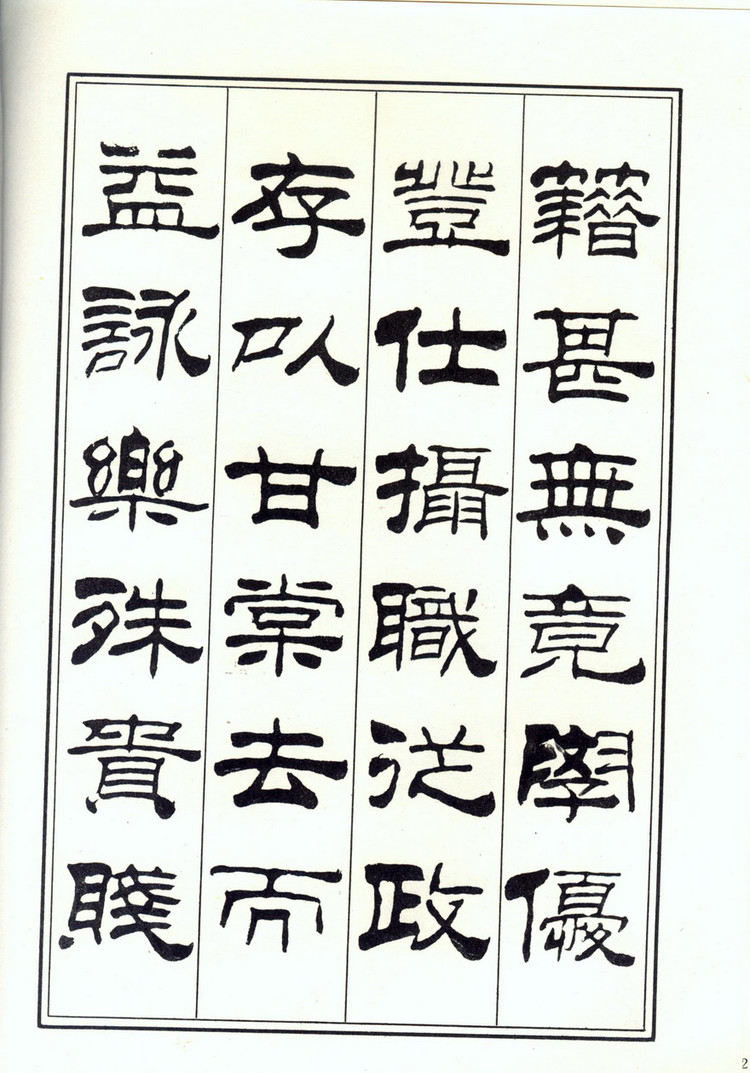 籍甚無竟學優
登仕攝職從政
存以甘棠去而
益詠樂殊貴賤
2